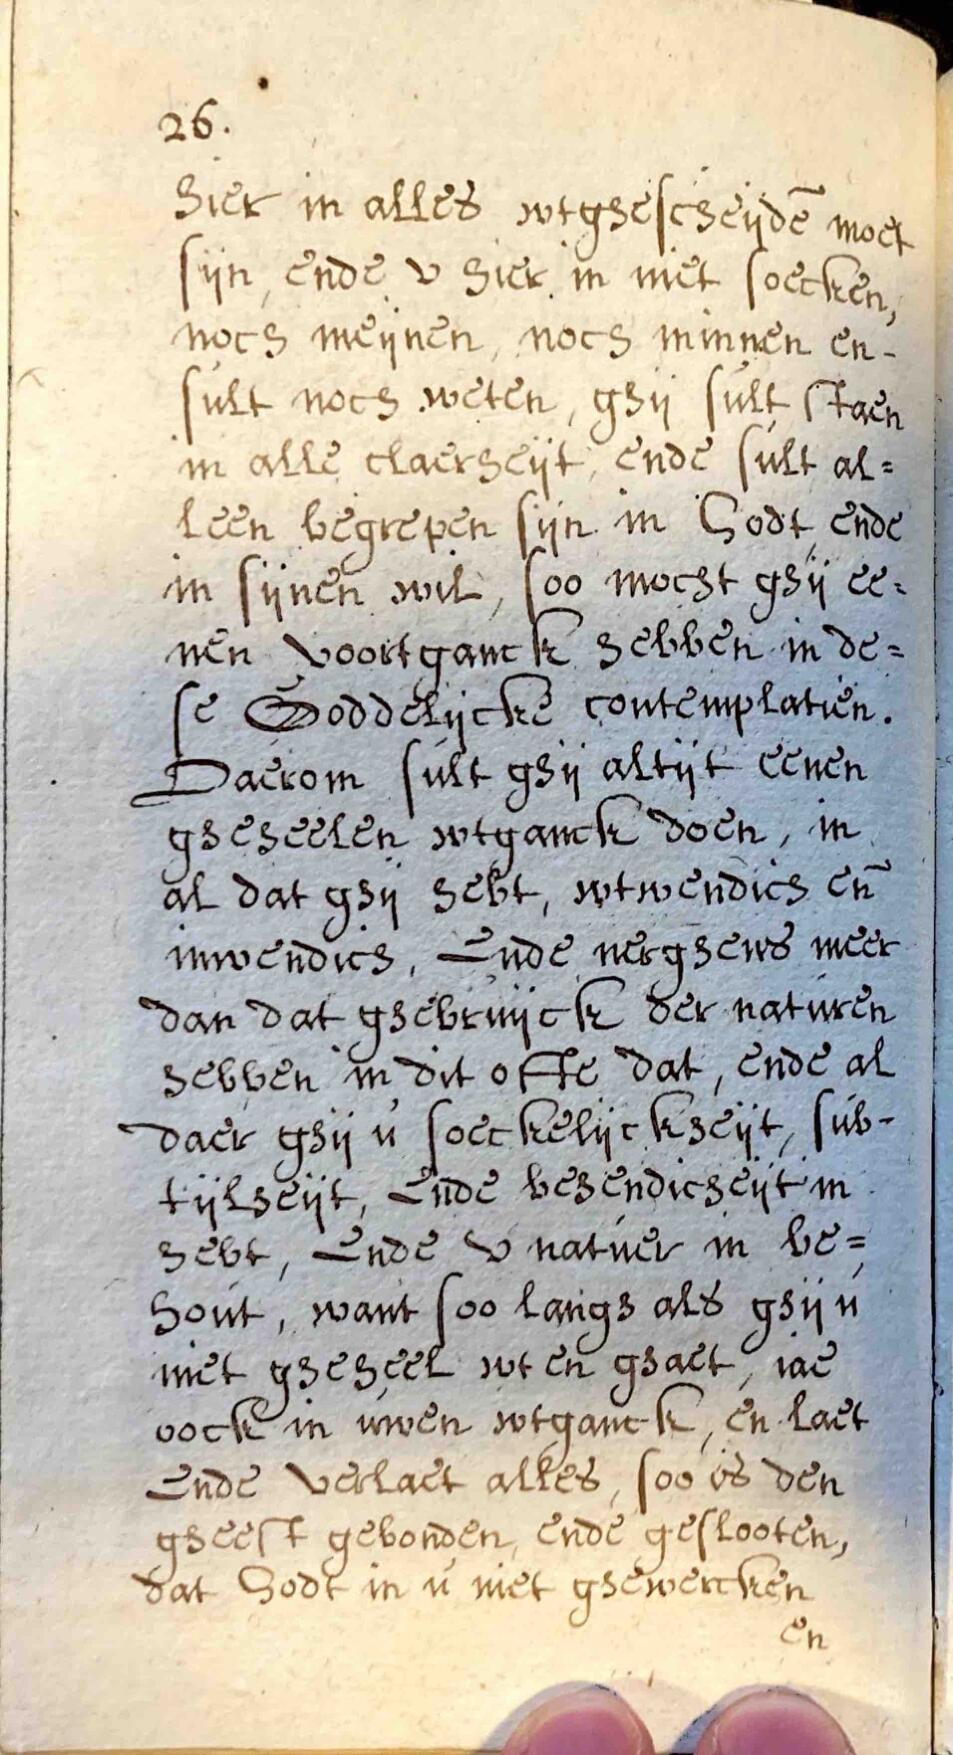 26.
hier in alles wtghescheijdē moet
sijn, ende v hier in niet soecken,
noch meijnen, noch minnen en-
sult noch weten, ghij sult staen
in alle claerheijt, ende sult al=
leen begrepen sijn in Godt ende
in sijnen wil, soo mocht ghij ee=
nen voortganck hebben in de=
se Goddelijcke contemplatien.
Daerom sult ghij altijt eenen
gheheelen wtganck doen, in
al dat ghij hebt, wtwendich en̄
inwendich, Ende nerghens meer
dan dat ghebruijck der naturen
hebben in dit ofte dat, ende al
daer ghij u soeckelijckheijt, sub-
tijlheijt, Ende behendicheijt in
hebt, Ende v natuer in be=
hout, want soo langh als ghij u
niet gheheel wt en ghaet, iae
oock in uwen wtganck, en laet
Ende verlaet alles, soo is den
gheest gebonden, ende geslooten,
dat Godt in u niet ghewercken
en